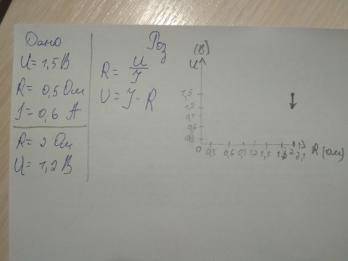 Дано
U = 1,5 В
R = 0,5 Ом
I = 0,6 А
R = 2 Ом
U = 1,2 В
Роз
R = U/I
U = I · R
(В)
U
1,5
0
0,3 0,6
R (ом)